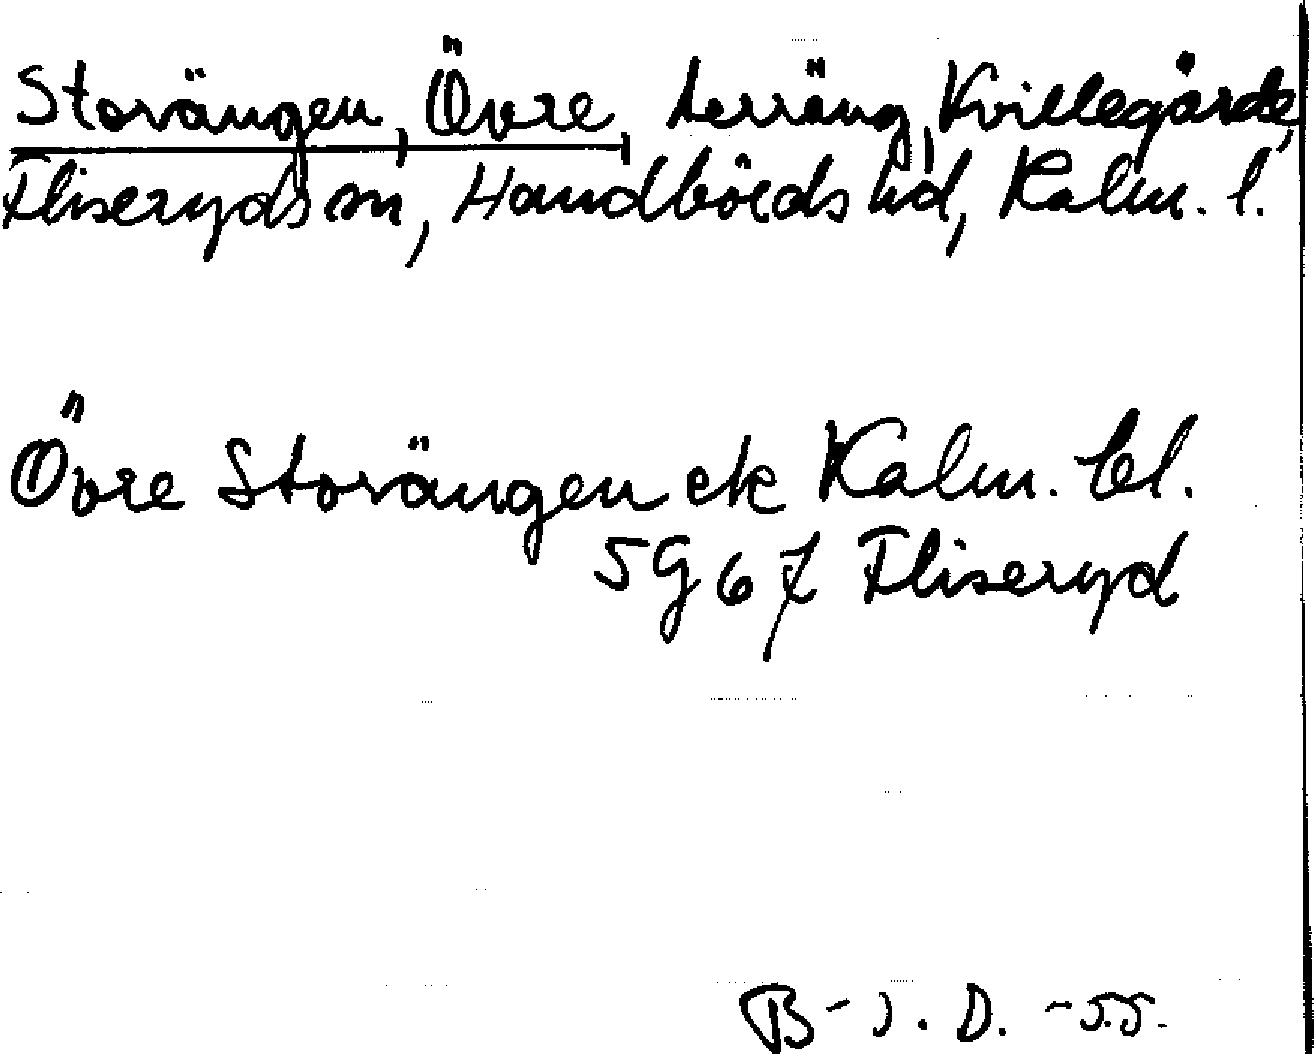 Storängen, Övre, terräng, Kvillegårde,
Fliseryds sn, Handbörds hd, Kalm. l.
Övre Storängen ek Kalm. bl.
5G 6 f Fliseryd
B-J. D. -55.